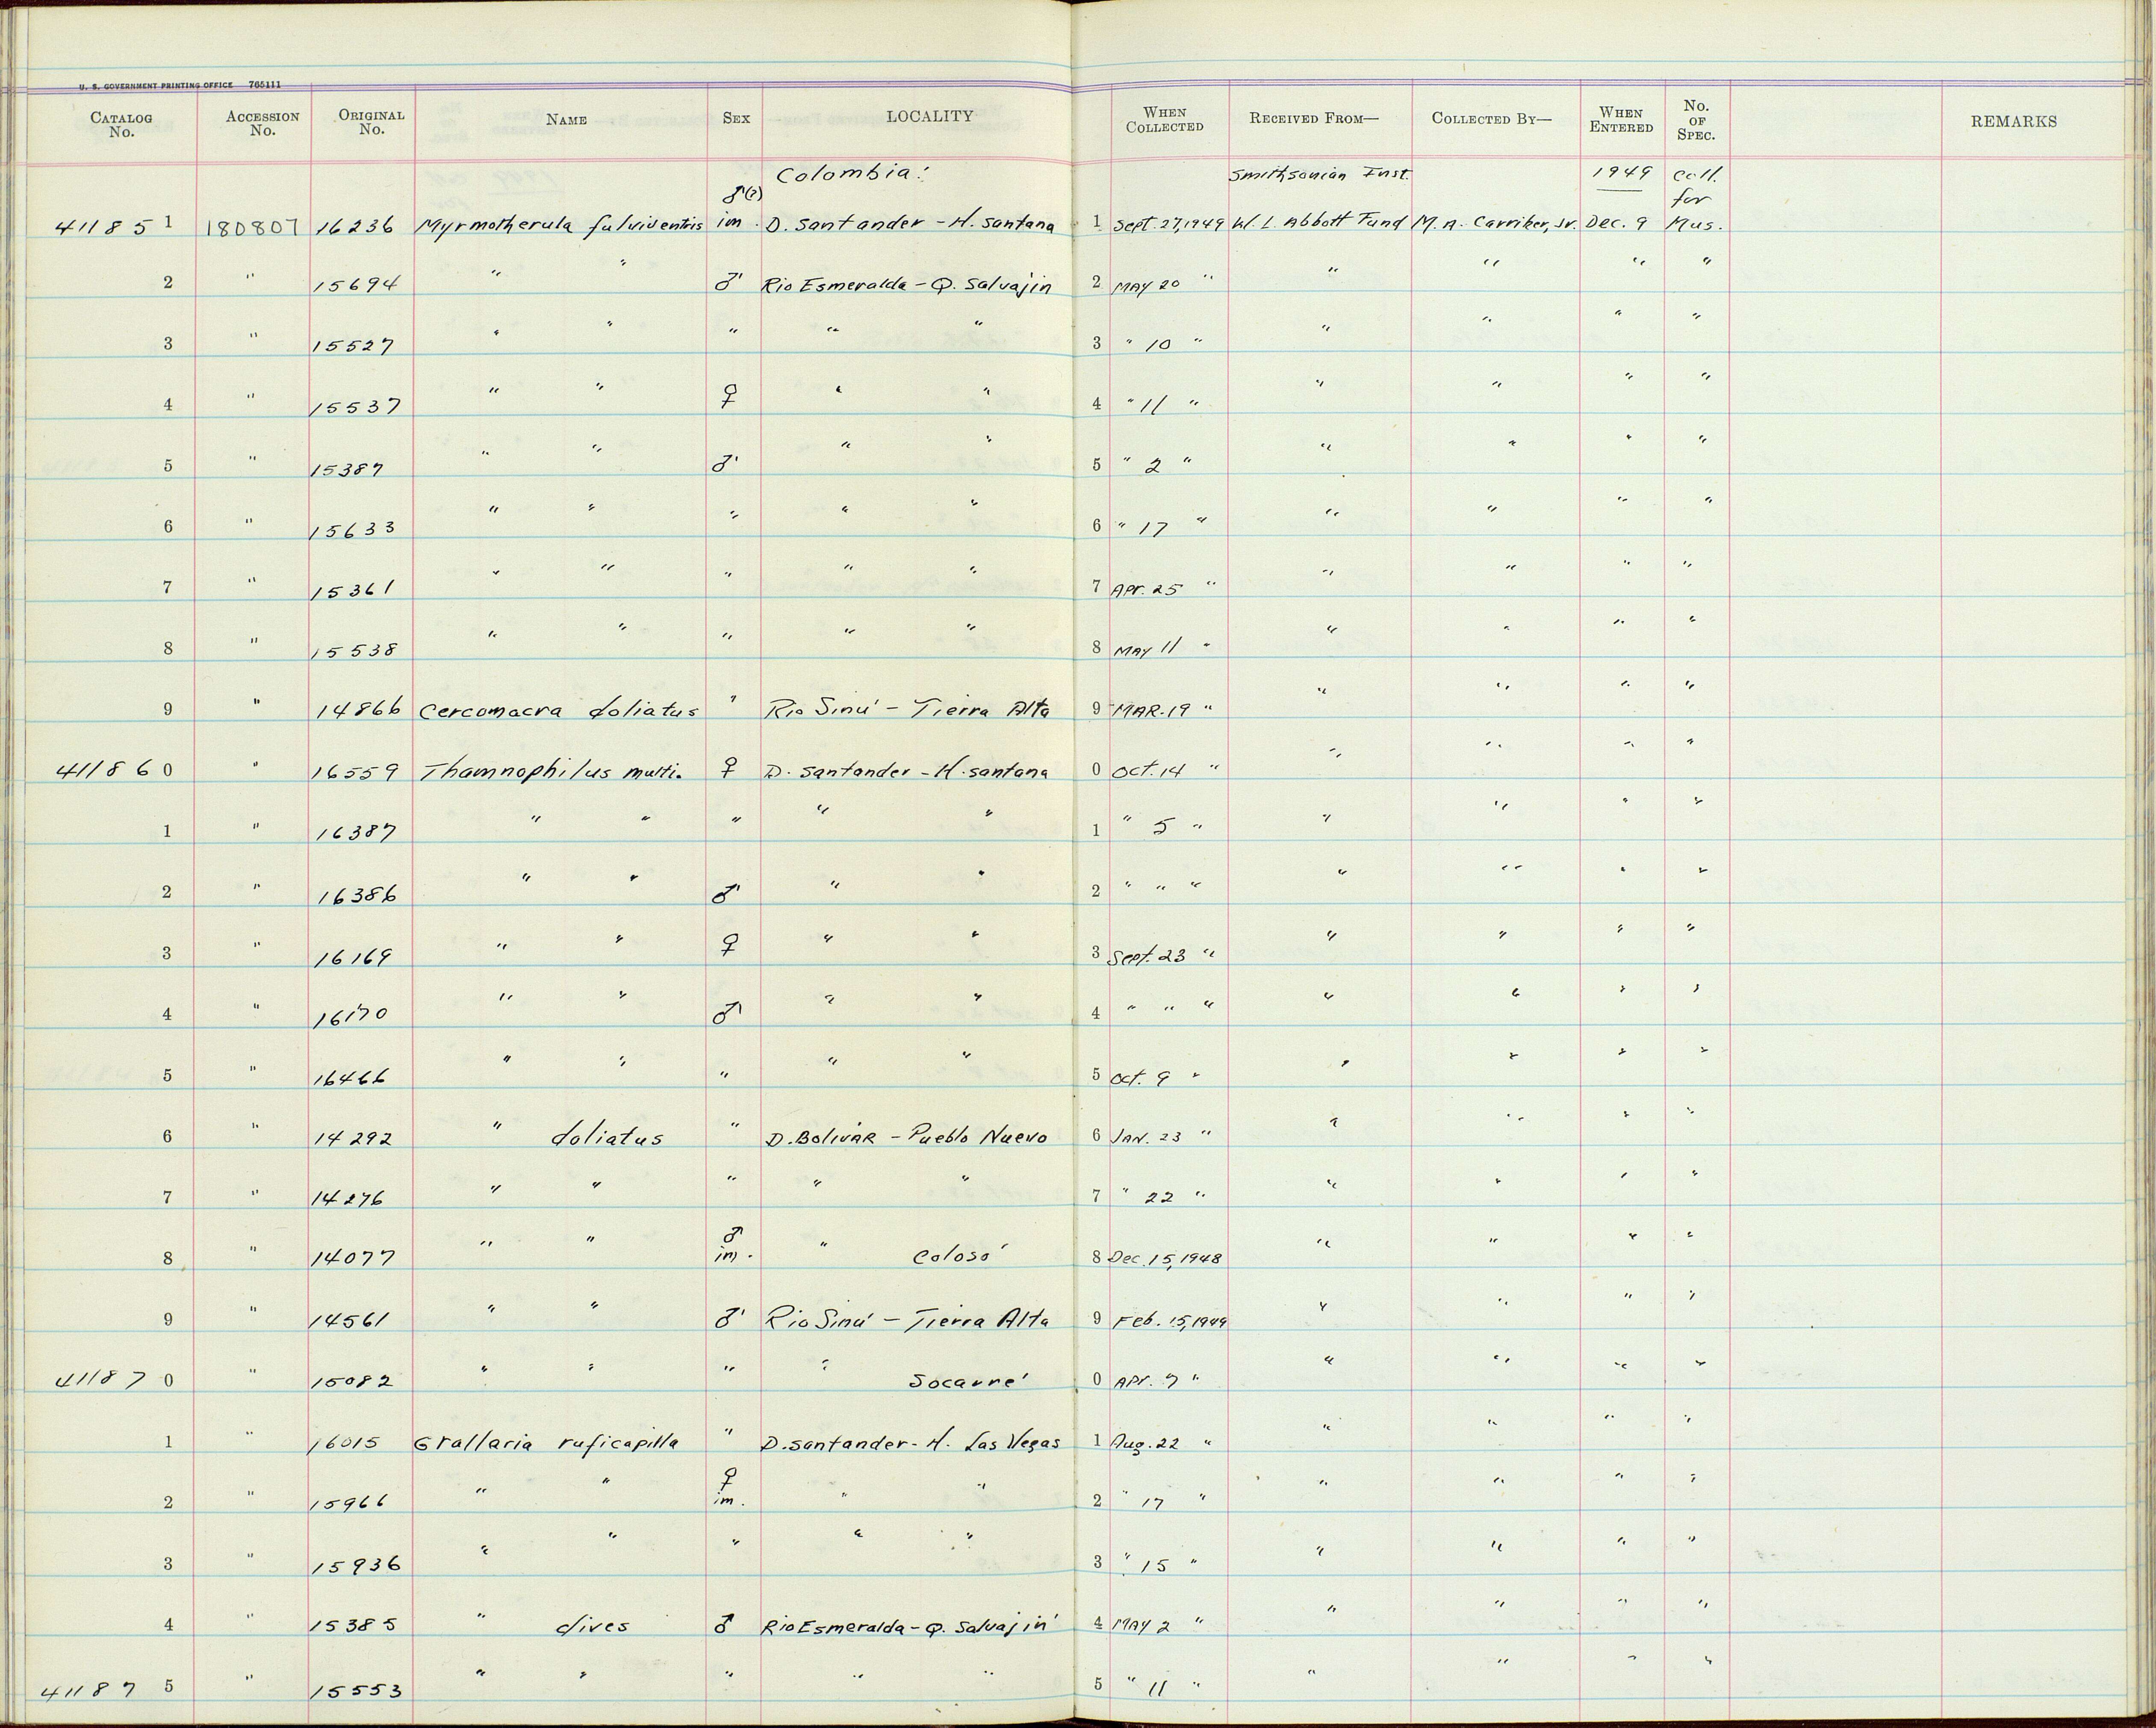 U. S. GOVERNMENT PRINTING OFFICE 765111
CATALOG No. ACCESSION No. ORIGINAL No. NAME SEX LOCALITY WHEN COLLECTED RECEIVED FROM— COLLECTED BY— WHEN ENTERED No. OF SPEC. REMARKS
Colombia: Smithsonian Inst. 1949 Coll. for
411851 180807 16236 Myrmotherula fulviventris ♂(?) im. D. Santander - H. Santana 1 Sept. 27, 1949 W. L. Abbott Fund M. A. Carriker, Jr. Dec. 9 Mus.
2 " 15694 " " ♂ Rio Esmeralda - Q. Salvajin 2 MAY 20 " " " " "
3 " 15527 " " " " " 3 " 10 " " " " "
4 " 15537 " " ♀ " " 4 " 11 " " " " "
5 " 15387 " " ♂ " " 5 " 2 " " " " "
6 " 15633 " " " " " 6 " 17 " " " " "
7 " 15361 " " " " " 7 Apr. 25 " " " " "
8 " 15538 " " " " " 8 MAY 11 " " " " "
9 " 14866 Cercomacra doliatus " Rio Sinú - Tierra Alta 9 MAR. 19 " " " " "
411860 " 16559 Thamnophilus multi. ♀ D. Santander - H. Santana 0 Oct. 14 " " " " "
1 " 16387 " " " " " 1 " 5 " " " " "
2 " 16386 " " ♂ " " 2 " " " " " " "
3 " 16169 " " ♀ " " 3 Sept. 23 " " " " "
4 " 16170 " " ♂ " " 4 " " " " " " "
5 " 16466 " " " " " 5 Oct. 9 " " " " "
6 " 14292 " doliatus " D. BOLIVAR - Pueblo Nuevo 6 JAN. 23 " " " " "
7 " 14276 " " " " " 7 " 22 " " " " "
8 " 14077 " " ♂ im. " Colosó 8 Dec. 15, 1948 " " " "
9 " 14561 " " ♂ Rio Sinú - Tierra Alta 9 Feb. 15, 1949 " " " "
411870 " 15082 " " " " Socarré 0 APr. 7 " " " " "
1 " 16015 Grallaria ruficapilla " D. Santander - H. Las Vegas 1 Aug. 22 " " " " "
2 " 15966 " " ♀ im. " " 2 " 17 " " " " "
3 " 15936 " " " " " 3 " 15 " " " " "
4 " 15385 " dives ♂ Rio Esmeralda - Q. Salvajin 4 MAY 2 " " " " "
411875 " 15553 " " " " " 5 " 11 " " " " "